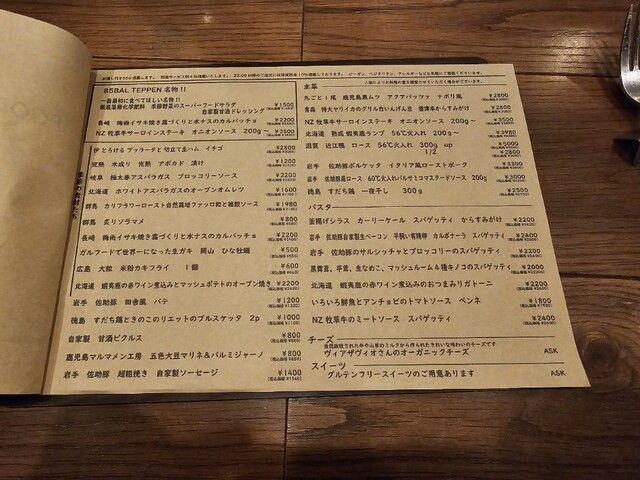 85BAL TEPPEN 名物!!
一番最初に食べてほしい名物!!
無農薬無化学肥料 季節野菜のスーパーフードサラダ ¥1500
自家製甘酒ドレッシング
長崎 梅雨イサキ焼き霜づくりと水ナスのカルパッチョ ¥2200
NZ 牧草牛サーロインステーキ オニオンソース 200g〜 ¥3500
季節の食材たち
伊 とろける ブッラータと 切立て生ハム イチゴ ¥2800
完熟 木成り 完熟 アボカド 漬け ¥1200
岐阜 極太春アスパラガス ブロッコリーソース ¥2200
北海道 ホワイトアスパラガスのオープンオムレツ ¥1600
群馬 カリフラワーロースト自然栽培ファッロ粒と雑穀ソース ¥1980
群馬 炙りソラマメ ¥800
長崎 梅雨イサキ焼き霜づくりと水ナスのカルパッチョ ¥2200
ガルフードで世界一になった生ガキ 岡山 ひな牡蠣 ¥500
広島 大粒 米粉カキフライ 1個 ¥600
北海道 蝦夷鹿の赤ワイン煮込みとマッシュポテトのオープン焼き ¥2200
岩手 佐助豚 田舎風 パテ ¥1200
徳島 すだち鶏ときのこのリエットのブルスケッタ 2p ¥1000
自家製 甘酒ピクルス ¥800
鹿児島マルマメン工房 五色大豆マリネ&パルミジャーノ ¥800
岩手 佐助豚 超粗挽き 自家製ソーセージ ¥1400
主菜
丸ごと1尾 鹿児島黒ムツ アクアパッツァ ナポリ風 ¥2800
青森 特大ヤリイカのグリル白いんげん豆 唐津本からすみがけ ¥2800
NZ 牧草牛サーロインステーキ オニオンソース 200g〜 ¥3500
北海道 熟成 蝦夷鹿ランプ 56℃火入れ 200g〜 ¥3980
滋賀 近江鴨 ロース 56℃火入れ 300g up ¥5000
1/2 ¥2800
岩手 佐助豚ポルケッタ イタリア風ローストポーク ¥3300
岩手 佐助豚肩ロース 60℃火入れバルサミコマスタードソース 200g ¥3000
徳島 すだち鶏 一夜干し 300g ¥2500
パスタ
釜揚げシラス カーリーケール スパゲッティ からすみがけ ¥2200
岩手 佐助豚自家製生ベーコン 平飼い有精卵 カルボナーラ スパゲッティ ¥2400
岩手 佐助豚のサルシッチャとブロッコリーのスパゲッティ ¥2200
黒舞茸、平茸、生なめこ、マッシュルーム4種キノコのスパゲッティ ¥2000
北海道 蝦夷鹿の赤ワイン煮込みのおつまみリガトーニ ¥2200
いろいろ鮮魚とアンチョビのトマトソース ペンネ ¥1800
NZ 牧草牛のミートソース スパゲッティ ¥2400
チーズ
自然放牧された牛や山羊のミルクから作られたきれいな味わいのチーズです
ヴィアザヴィオさんのオーガニックチーズ ASK
スイーツ
グルテンフリースイーツのご用意あります ASK